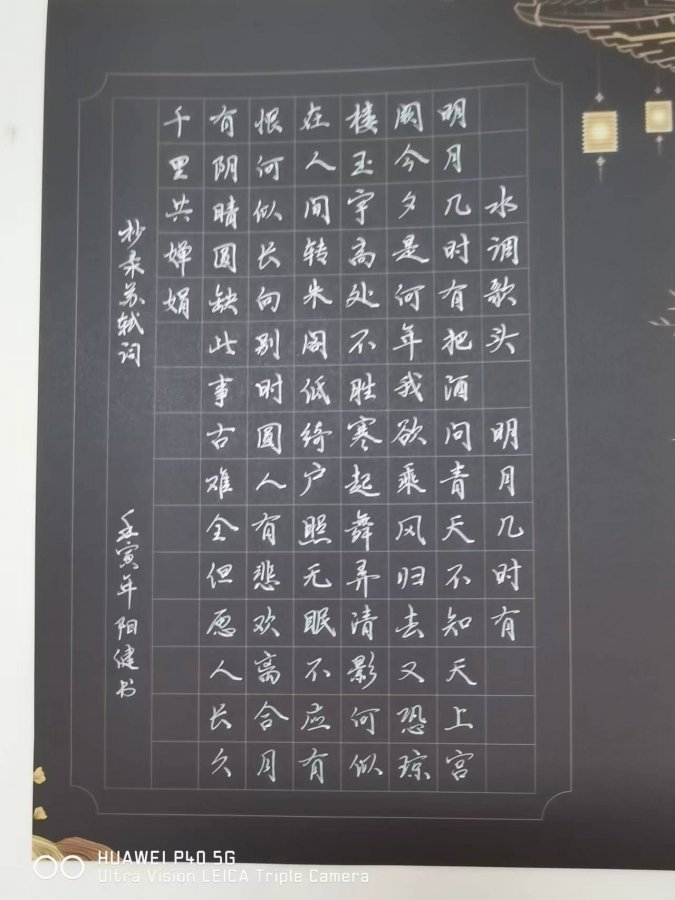 水调歌头 明月几时有
明月几时有把酒问青天不知天上宫
阙今夕是何年我欲乘风归去又恐琼
楼玉宇高处不胜寒起舞弄清影何似
在人间转朱阁低绮户照无眠不应有
恨何似长向别时圆人有悲欢离合月
有阴晴圆缺此事古难全但愿人长久
千里共婵娟
抄录苏轼词 壬寅年阳健书
HUAWEI P40 5G
Ultra Vision LEICA Triple Camera